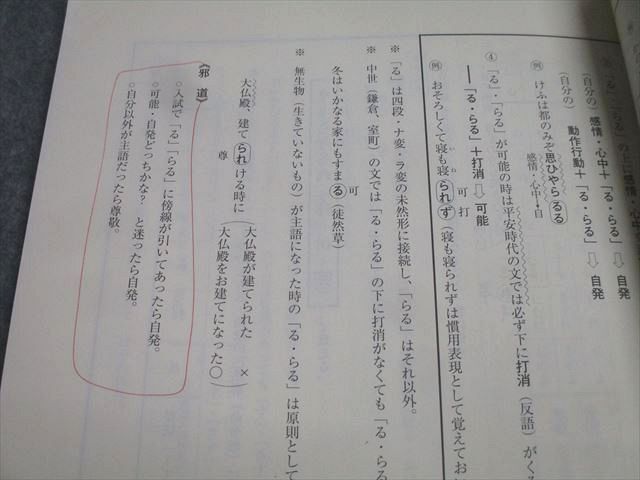 「る」・「らる」の上に感情・心中
（自分の）感情・心中＋「る・らる」⇨自発
（自分の）動作行動＋「る・らる」⇨自発
例 けふは都のみぞ思ひやらるる
感情・心中・自
④「る」・「らる」が可能の時は平安時代の文では必ず下に打消（反語）がく
――「る・らる」＋打消⇨可能
可 打
例 おそろしくて寝も寝られず（寝も寝られずは慣用表現として覚えてお
いね
※「る」は四段・ナ変・ラ変の未然形に接続し、「らる」はそれ以外。
※ 中世（鎌倉、室町）の文では「る・らる」の下に打消がなくても「る・らる
可
冬はいかなる家にもすまる（徒然草）
※ 無生物（生きていないもの）が主語になった時の「る・らる」は原則として
大仏殿、建てられける時に（大仏殿が建てられた ×）
尊（大仏殿をお建てになった〇）
《邪道》
○入試で「る」「らる」に傍線が引いてあったら自発。
○可能・自発どっちかな？ と迷ったら自発。
○自分以外が主語だったら尊敬。